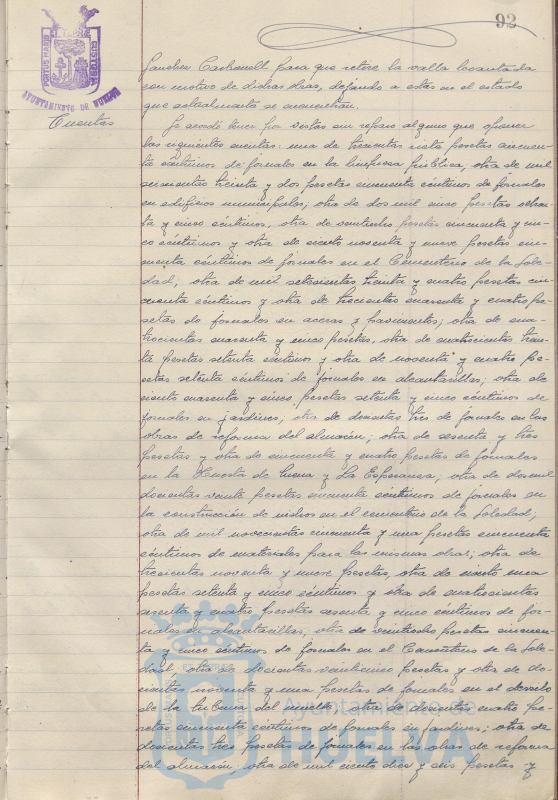 92
PORTUS MARIS CUSTODIA
AYUNTAMIENTO DE HUELVA
Cuentas
Sanchez Carbonell para que retire la valla levantada
con motivo de dichas obras, dejando a estas en el estado
que actualmente se encuentran.
Se acordó tener por vistas sin reparo alguno que oponer
las siguientes cuentas: una de trescientas siete pesetas cincuen-
ta céntimos de jornales en la limpieza pública, otra de mil
treinta y dos pesetas cincuenta céntimos de jornales
en edificios municipales; otra de dos mil cinco pesetas
ta y cinco céntimos, otra de veintiocho pesetas cincuenta y cin-
co céntimos y otra de ciento noventa y nueve pesetas cin-
cuenta céntimos de jornales en el Cementerio de la Sole-
dad; otra de mil setecientas treinta y cuatro pesetas cin-
cuenta céntimos y otra de trescientas cuarenta y cuatro pe-
setas de jornales en aceras y pavimentos; otra de cua-
trocientas cuarenta y cinco pesetas, otra de cuatrocientas trein-
ta pesetas setenta céntimos y otra de noventa y cuatro pe-
setas setenta céntimos de jornales en alcantarillas; otra de
ciento cuarenta y cinco pesetas setenta y cinco céntimos de
jornales en jardines; otra de doscientas tres de jornales en las
obras de reforma del almacén; otra de sesenta y tres
pesetas y otra de cincuenta y cuatro pesetas de jornales
en la Cuesta de Lucena y La Esperanza, otra de dos mil
doscientas veinte pesetas cincuenta céntimos de jornales en
la construcción de nichos en el cementerio de la Soledad;
otra de mil novecientas cincuenta y una pesetas cincuenta
céntimos de materiales para las mismas obras; otra de
trescientas noventa y nueve pesetas, otra de ciento una
pesetas setenta y cinco céntimos y otra de cuatrocientas
sesenta y cuatro pesetas sesenta y cinco céntimos de jor-
nales en alcantarillas, otra de veintiocho pesetas cincuen-
ta y cinco céntimos de jornales en el Cementerio de la Sole-
dad, otra de doscientas veinticinco pesetas y otra de dos-
cientas noventa y una pesetas de jornales en el
de la tubería del muelle, otra de doscientas cuatro pe-
setas cincuenta céntimos de jornales en jardines; otra de
doscientas tres pesetas de jornales en las obras de reforma
del almacén, otra de mil ciento diez y seis pesetas y
Ayuntamiento de
HUELVA